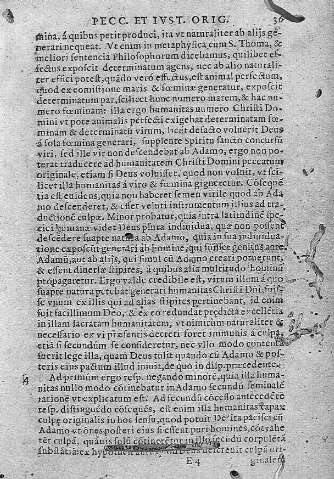 PECC. ET IVST. ORIG. 36
mina, á quibus petit produci, ita vt naturaliter ab alijs ge-
nerari nequeat. Vt enim in metaphysica cum S. Thoma, &
meliori sententia Philosophorum dicebamus, quilibet ef-
fectus exposcit determinatum agens, nec ab alio naturali-
ter effici potest, quãdo verò effectus, est animal perfectum,
quod ex comistione maris & fœminæ generatur, exposcit
determinatum par, scilicet hunc numero marem, & hac nu-
mero fœminam: illa ergo humanitas numero Christi Do-
mini vt pote animalis perfecti exigebat determinatam fœ-
minam & determinatũ virum, licet defacto voluerit Deus
á sola fœmina generari, supplente Spiritu sancto concursũ
viri, sed ille vir non descendebat ab Adamo, ergo non po-
terat traducere ad humanitatem Christi Domini peccatum
originale, etiam si Deus voluisset, quod non voluit, vt sci-
licet illa humanitas á viro & fœmina gigneretur. Cõsequē
tia est euidens, quia non haberet semen virile quod ab Ada
mo descenderet, & esset veluti instrumentum illius ad tra-
ductionē culpæ. Minor probatur, quia intra latitudinē spe-
ciei humanæ videt Deus plura indiuidua, quæ non possent
descendere suapte natura ab Adamo, quia in sua indiuidua
tione exposcit generari ab homine, qui fuisset genitus ante
Adamũ, aut ab alijs, qui simul cũ Adamo creari potuerunt,
& essent diuersæ stipites, á quibus alia multitudo hominũ
propagaretur. Ergo valde credibile est, virum illum á quo
suapte natura petebat generari humanitas Christi Dñi fuis-
se vnum ex illis qui ad alias stipites pertinebant, id enim
fuit facillimum Deo, & ex eo redundat perfecta excellētia
in illam sacratam humanitatem, vt nimirum naturaliter &
necessario ex vi præsentis decreti foret immunis à culpa,
etiã si secundũm se consideretur, nec vllo modo contenta
fuerit lege illa, quam Deus tulit quando cũ Adamo & pos-
teris eius pactum illud inuit, de quo in disp. præcedente.
Ad primum ergo resp. negando minorē, quia illa huma-
nitas nullo modo cõtinebatur in Adamo secundũ seminalē
rationē vt explicatum est. Ad secundũ cõcesso antecedēte
resp. distinguēdo cõsequēs, est enim illa humanitas capax
culpæ originalis in hoc sensu, quod potuit
Adamo vt omnes posteri eius si essent puri homines, cõtrahe
ret culpã, quãuis solũ cõtineretur in illo secũdũ corpulētã
substãtiã
E 4 ginalem